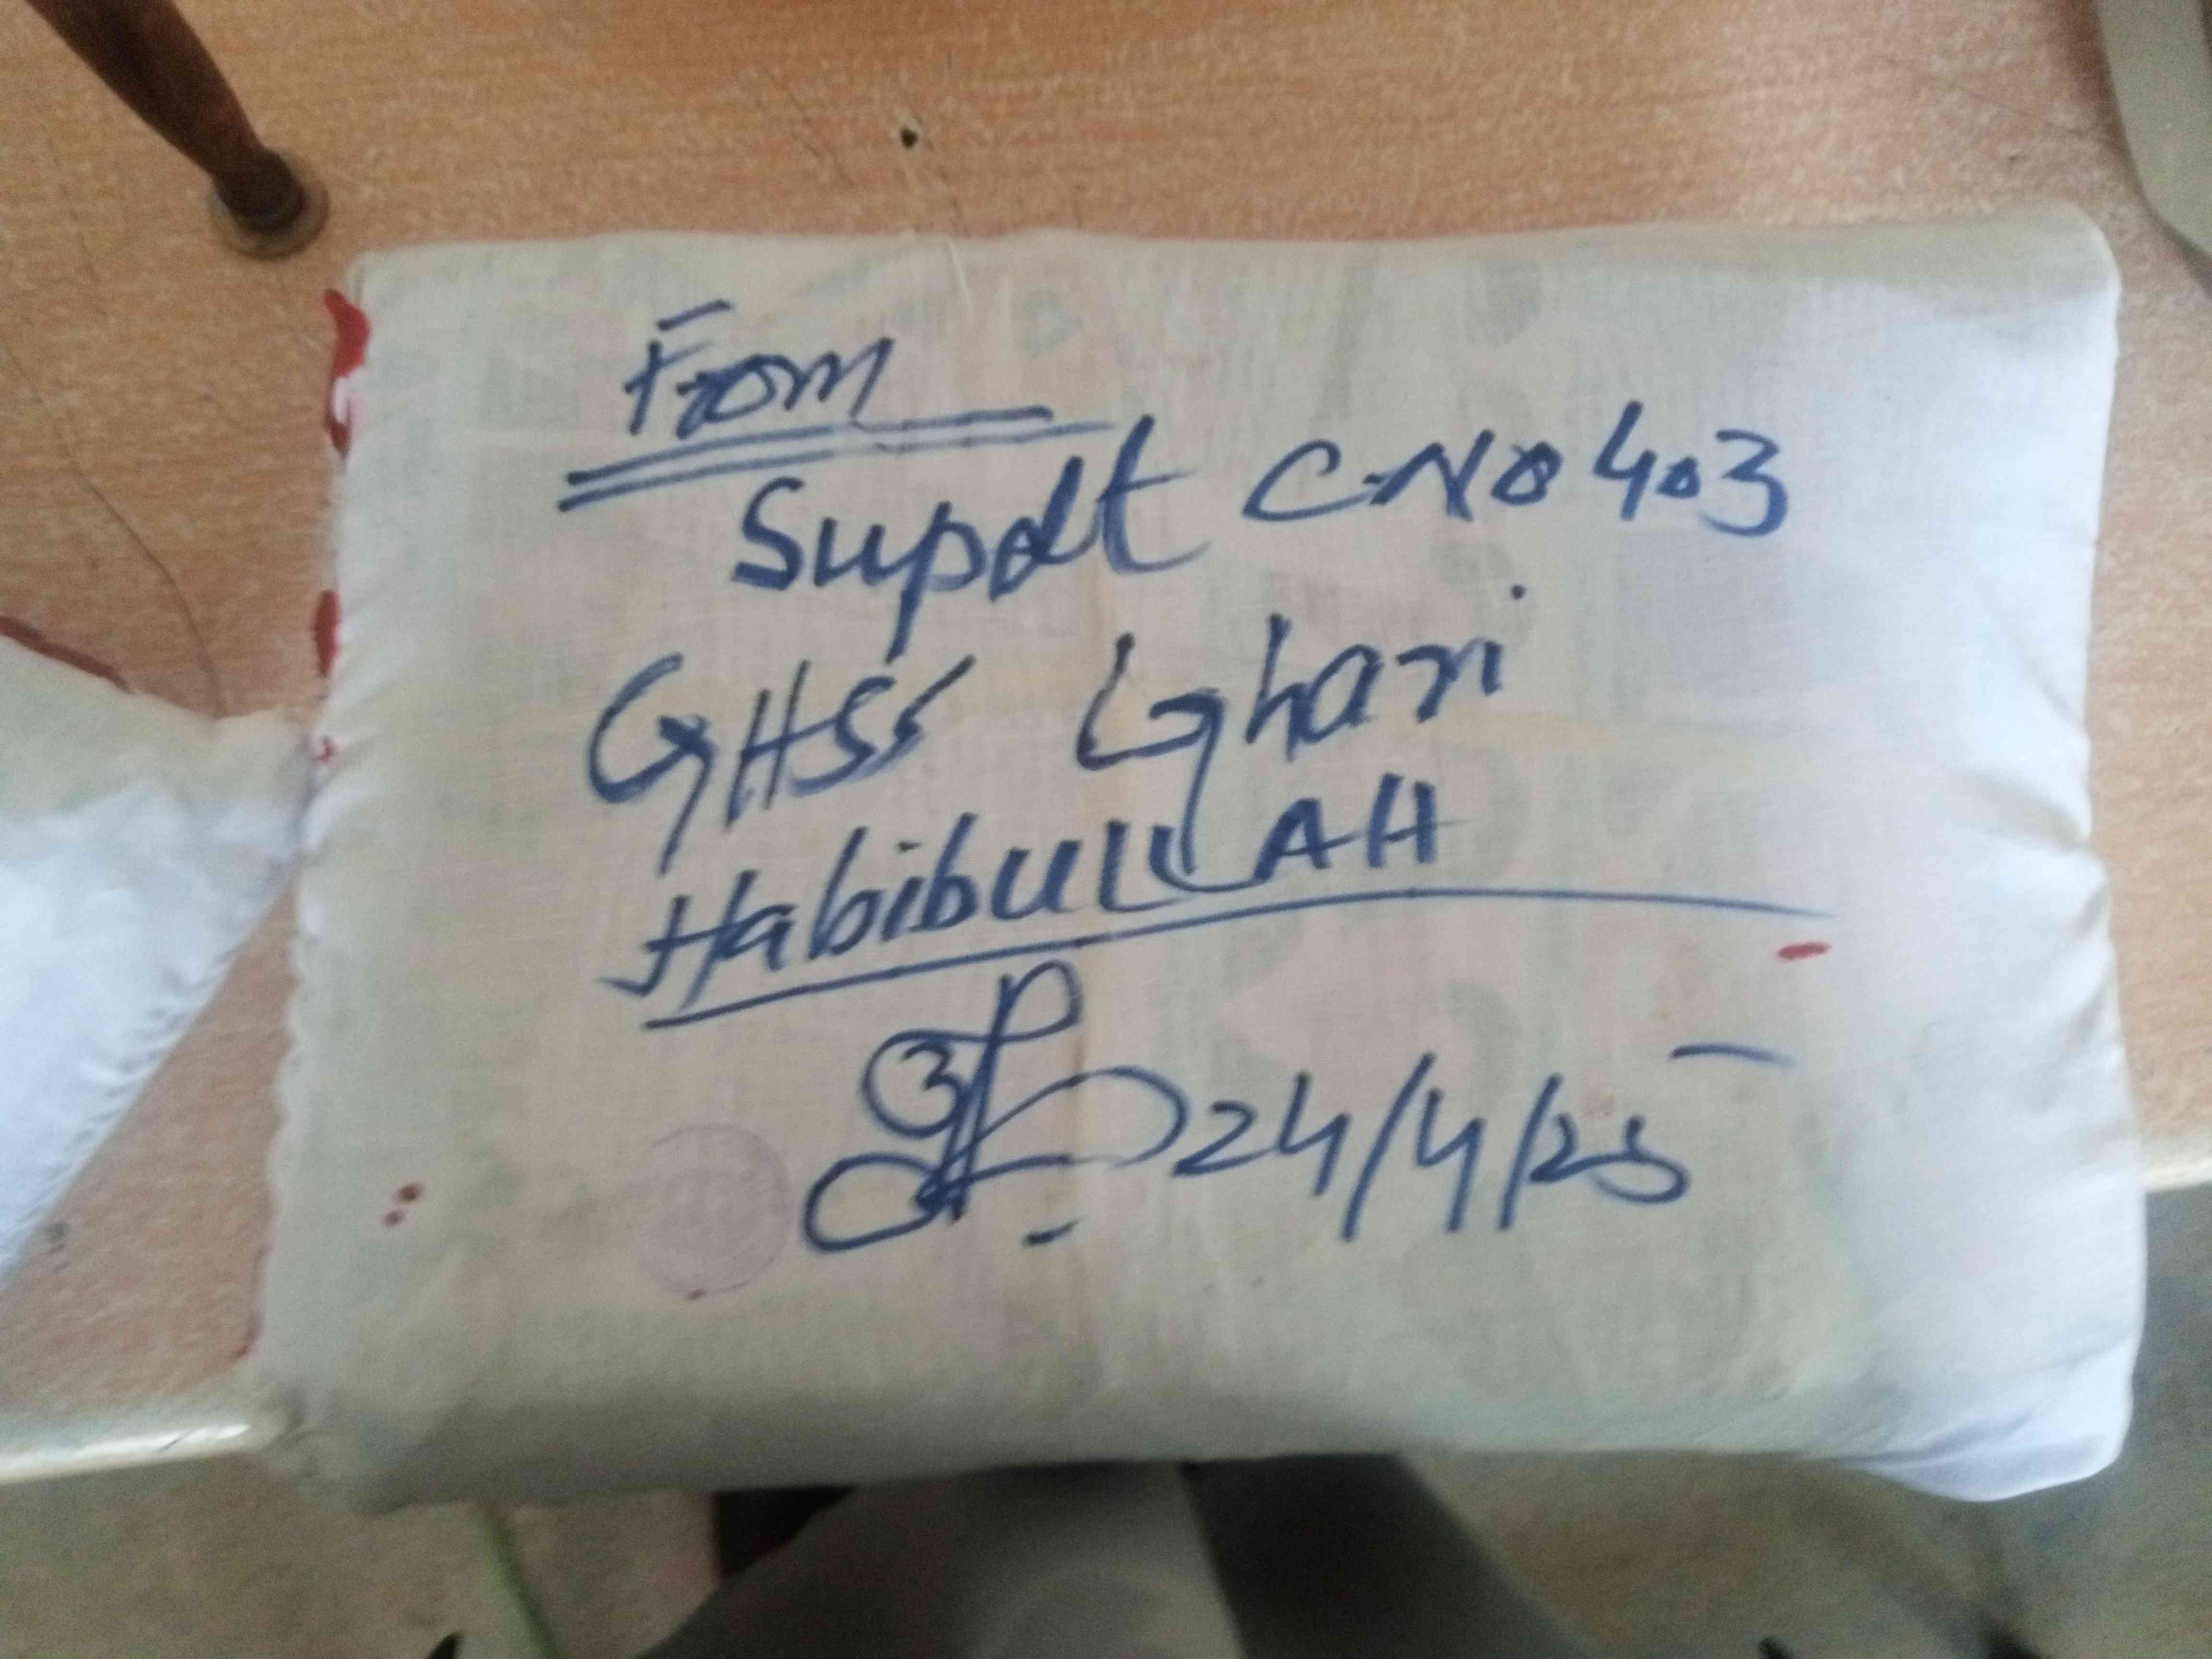 From
Supdt C.No 403
GHSS Ghari
HabibULLAH
24/4/25